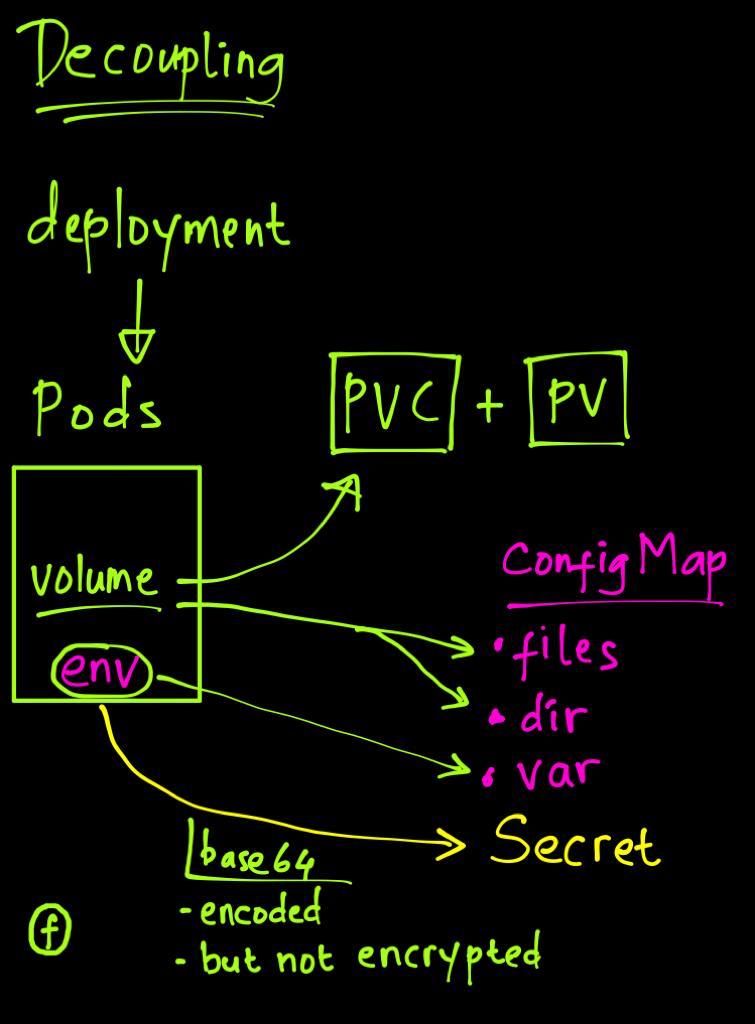 Decoupling
deployment
Pods
PVC + PV
volume
env
ConfigMap
• files
• dir
• var
Secret
base64
- encoded
- but not encrypted
f